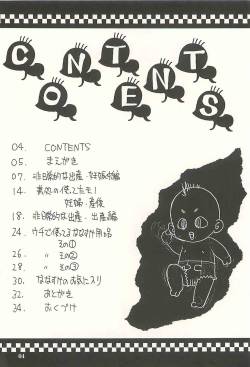 CONTENTS
04. CONTENTS
05. まえがき
07. 非日常的な出産・妊娠編
14.
妊婦・産後
18. 非日常的な出産・出産編
24. ウチで使えるななすけ用品
その①
26. 〃 その②
28. 〃 その③
30. ななすけのお気に入り
32. あとがき
34. おくづけ
04